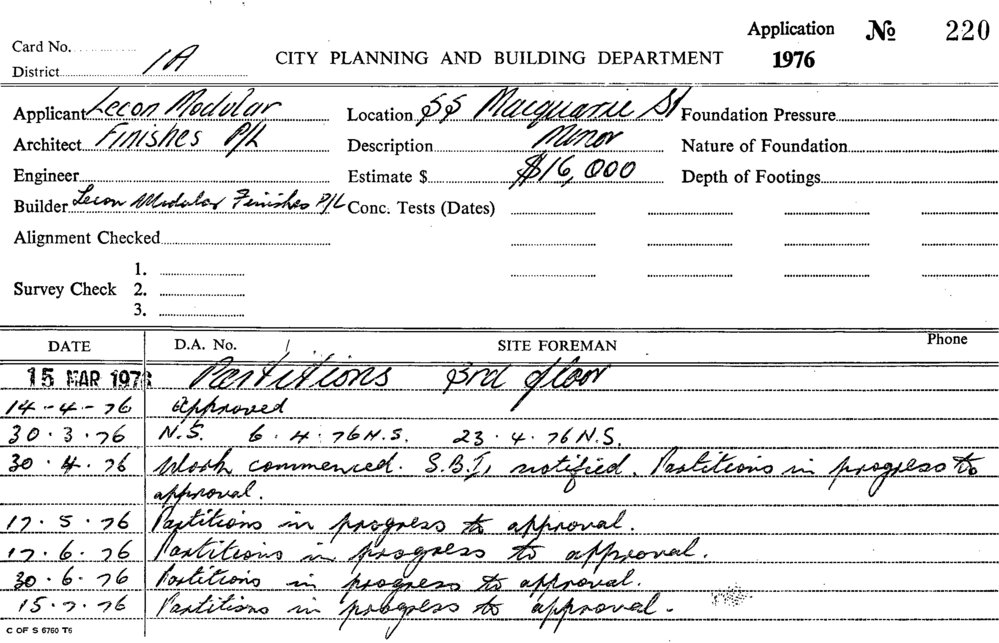 Application No 220
Card No.
1976
District 1A
CITY PLANNING AND BUILDING DEPARTMENT
Applicant Lecon Modular Location 55 Macquarie St Foundation Pressure
Architect Finishes P/L Description Minor Nature of Foundation
Engineer Estimate $ $16,000 Depth of Footings
Builder Lecon Modular Finishes P/L Conc. Tests (Dates)
Alignment Checked
1.
Survey Check 2.
3.
DATE D.A. No. SITE FOREMAN Phone
15 MAR 1976 Partitions 3rd floor
14-4-76 Approved
30.3.76 N.S. 6.4.76 N.S. 23.4.76 N.S.
30.4.76 Work commenced. S.B.I. notified. Partitions in progress to
approval.
17.5.76 Partitions in progress to approval.
17.6.76 Partitions in progress to approval.
30.6.76 Partitions in progress to approval.
15.7.76 Partitions in progress to approval.
C OF S 6760 T6